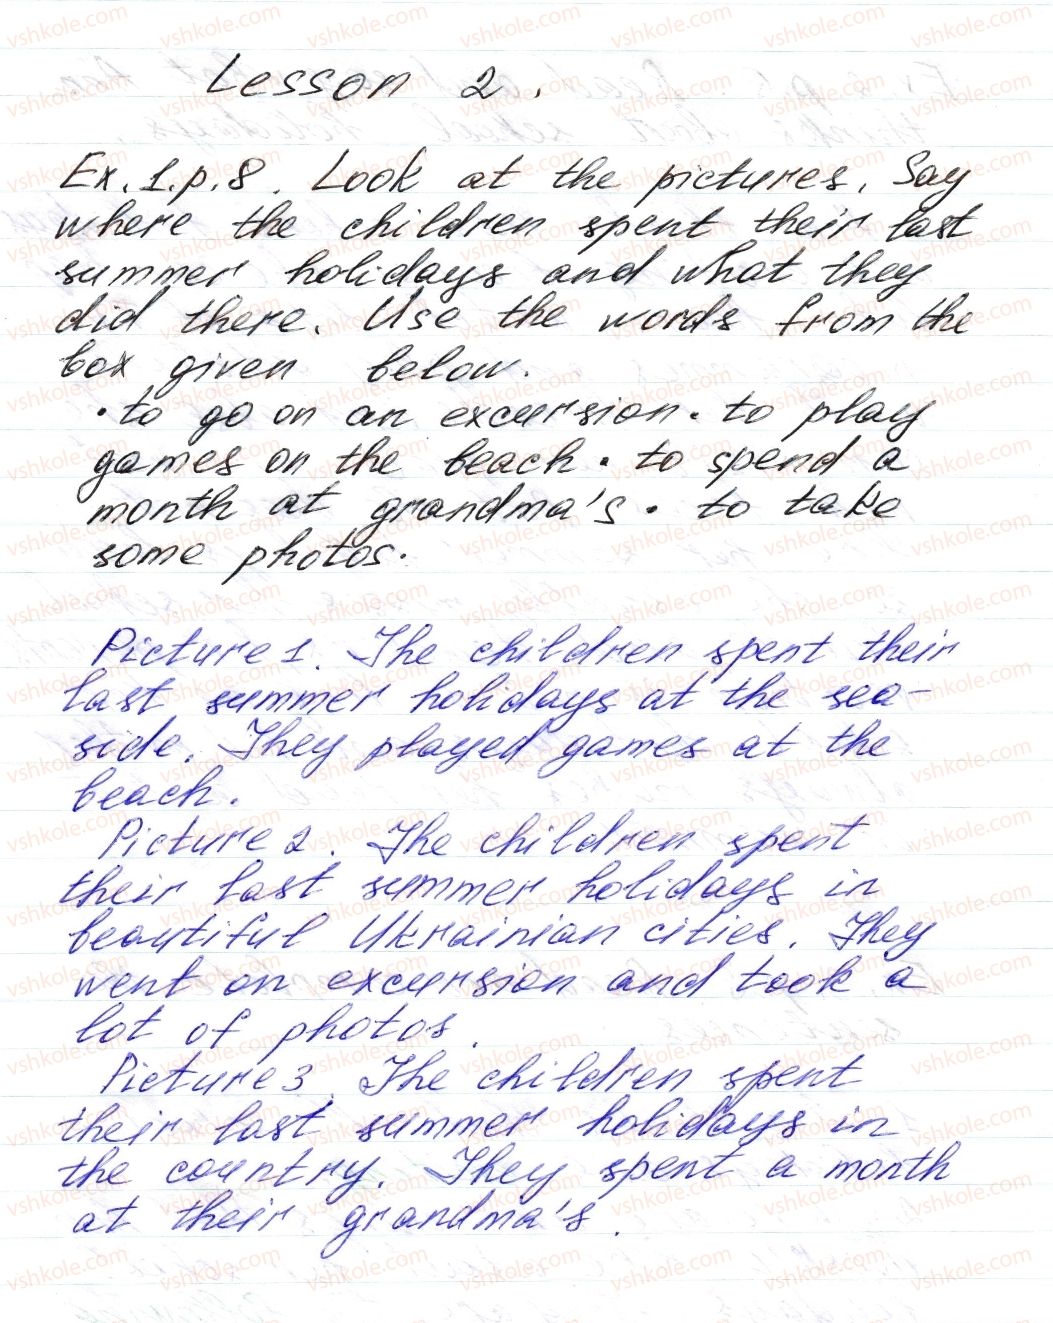 Lesson 2.
Ex. 1. p. 8. Look at the pictures. Say
where the children spent their last
summer holidays and what they
did there. Use the words from the
box given below.
• to go on an excursion • to play
games on the beach • to spend a
month at grandma's • to take
some photos.
Picture 1. The children spent their
last summer holidays at the sea-
side. They played games at the
beach.
Picture 2. The children spent
their last summer holidays in
beautiful Ukrainian cities. They
went on excursion and took a
lot of photos.
Picture 3. The children spent
their last summer holidays in
the country. They spent a month
at their grandma's.